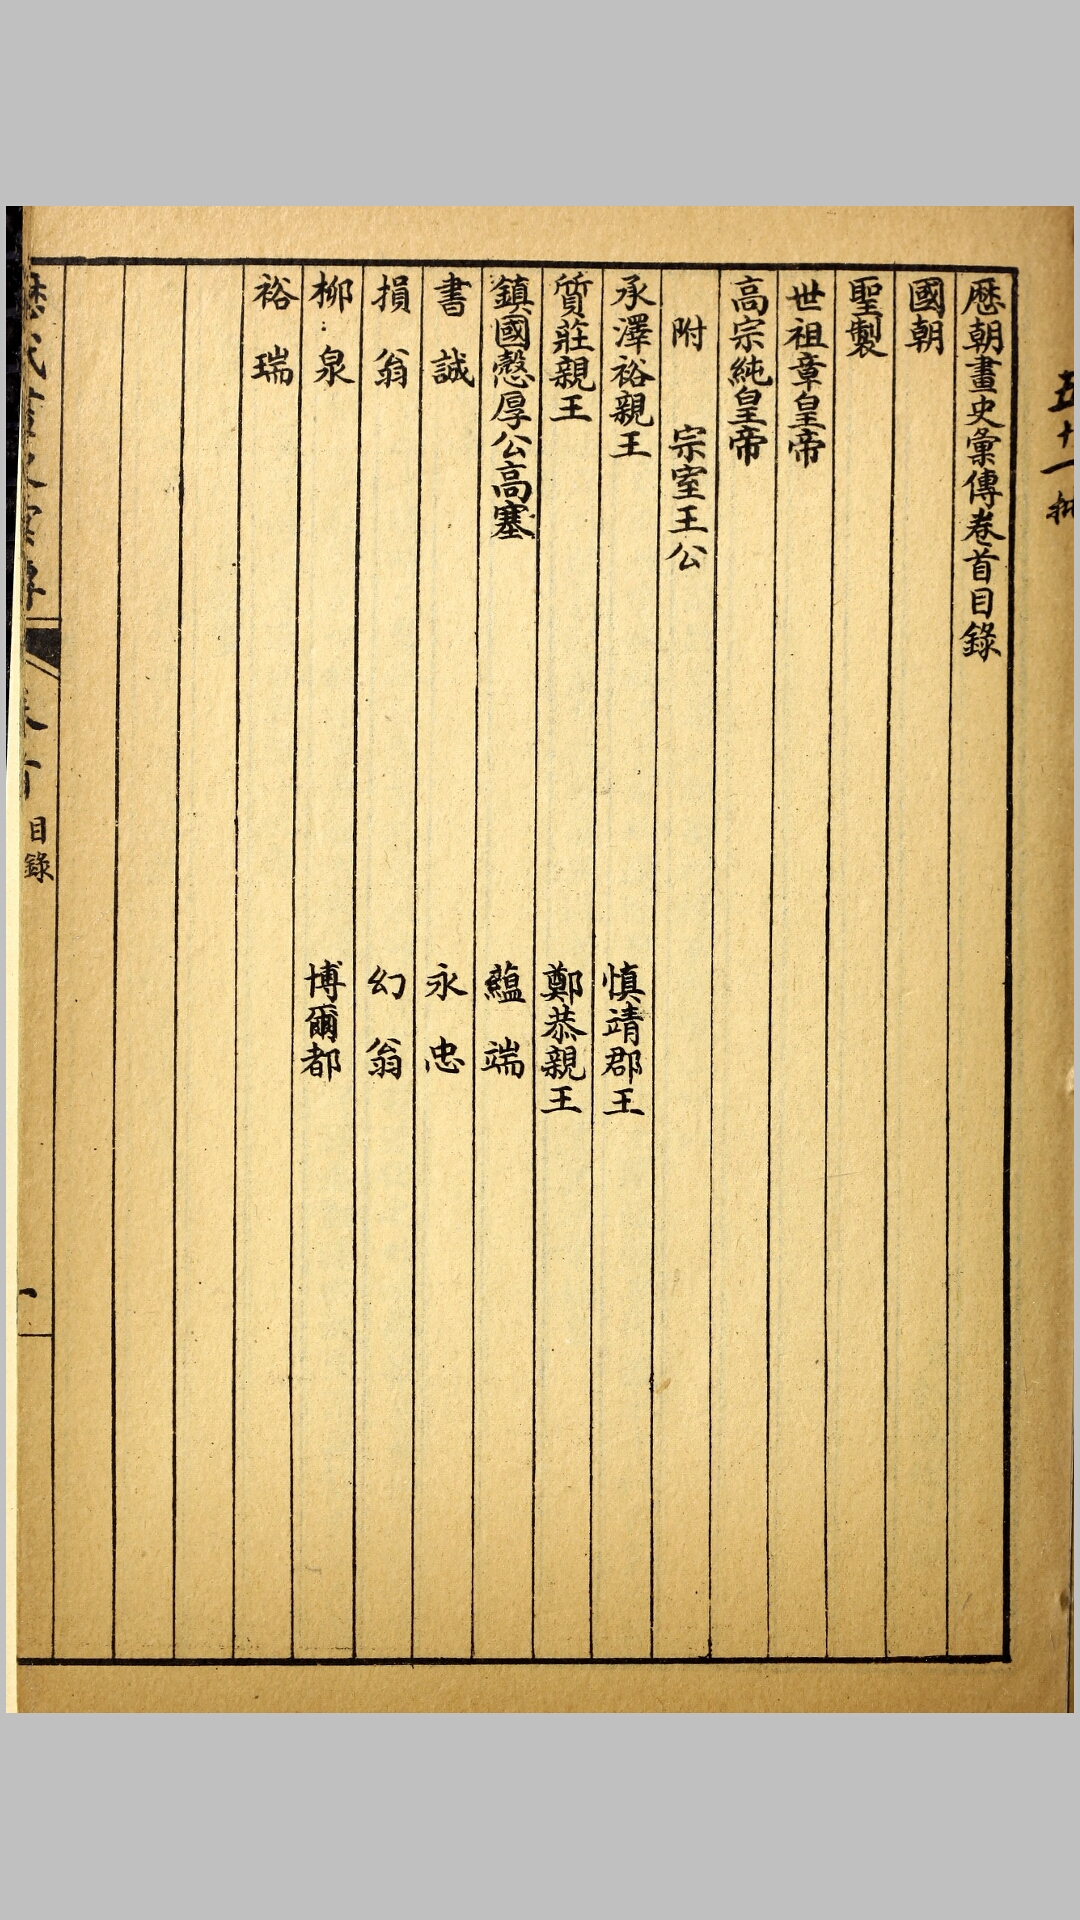 歷朝畫史彙傳卷首目錄
國朝
聖製
世祖章皇帝
高宗純皇帝
附 宗室王公
承澤裕親王 慎靖郡王
質莊親王 鄭恭親王
鎮國慤厚公高塞 蘊端
書誠 永忠
損翁 幻翁
柳泉 博爾都
裕瑞
目錄